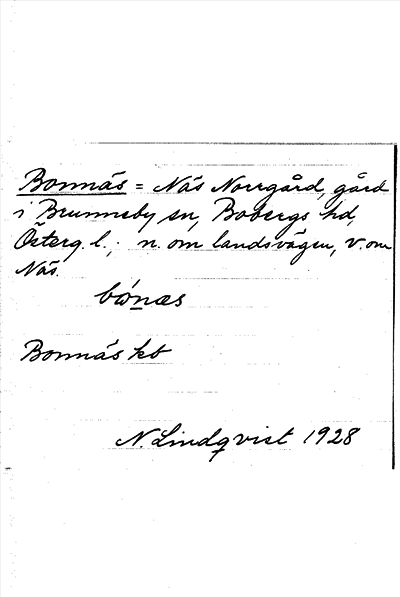 Bonnäs = Näs Norrgård, gård
i Brunneby sn, Bobergs hd,
Österg. l.; n. om landsvägen, v. om
Näs.
Bonnäs kb
N. Lindqvist 1928